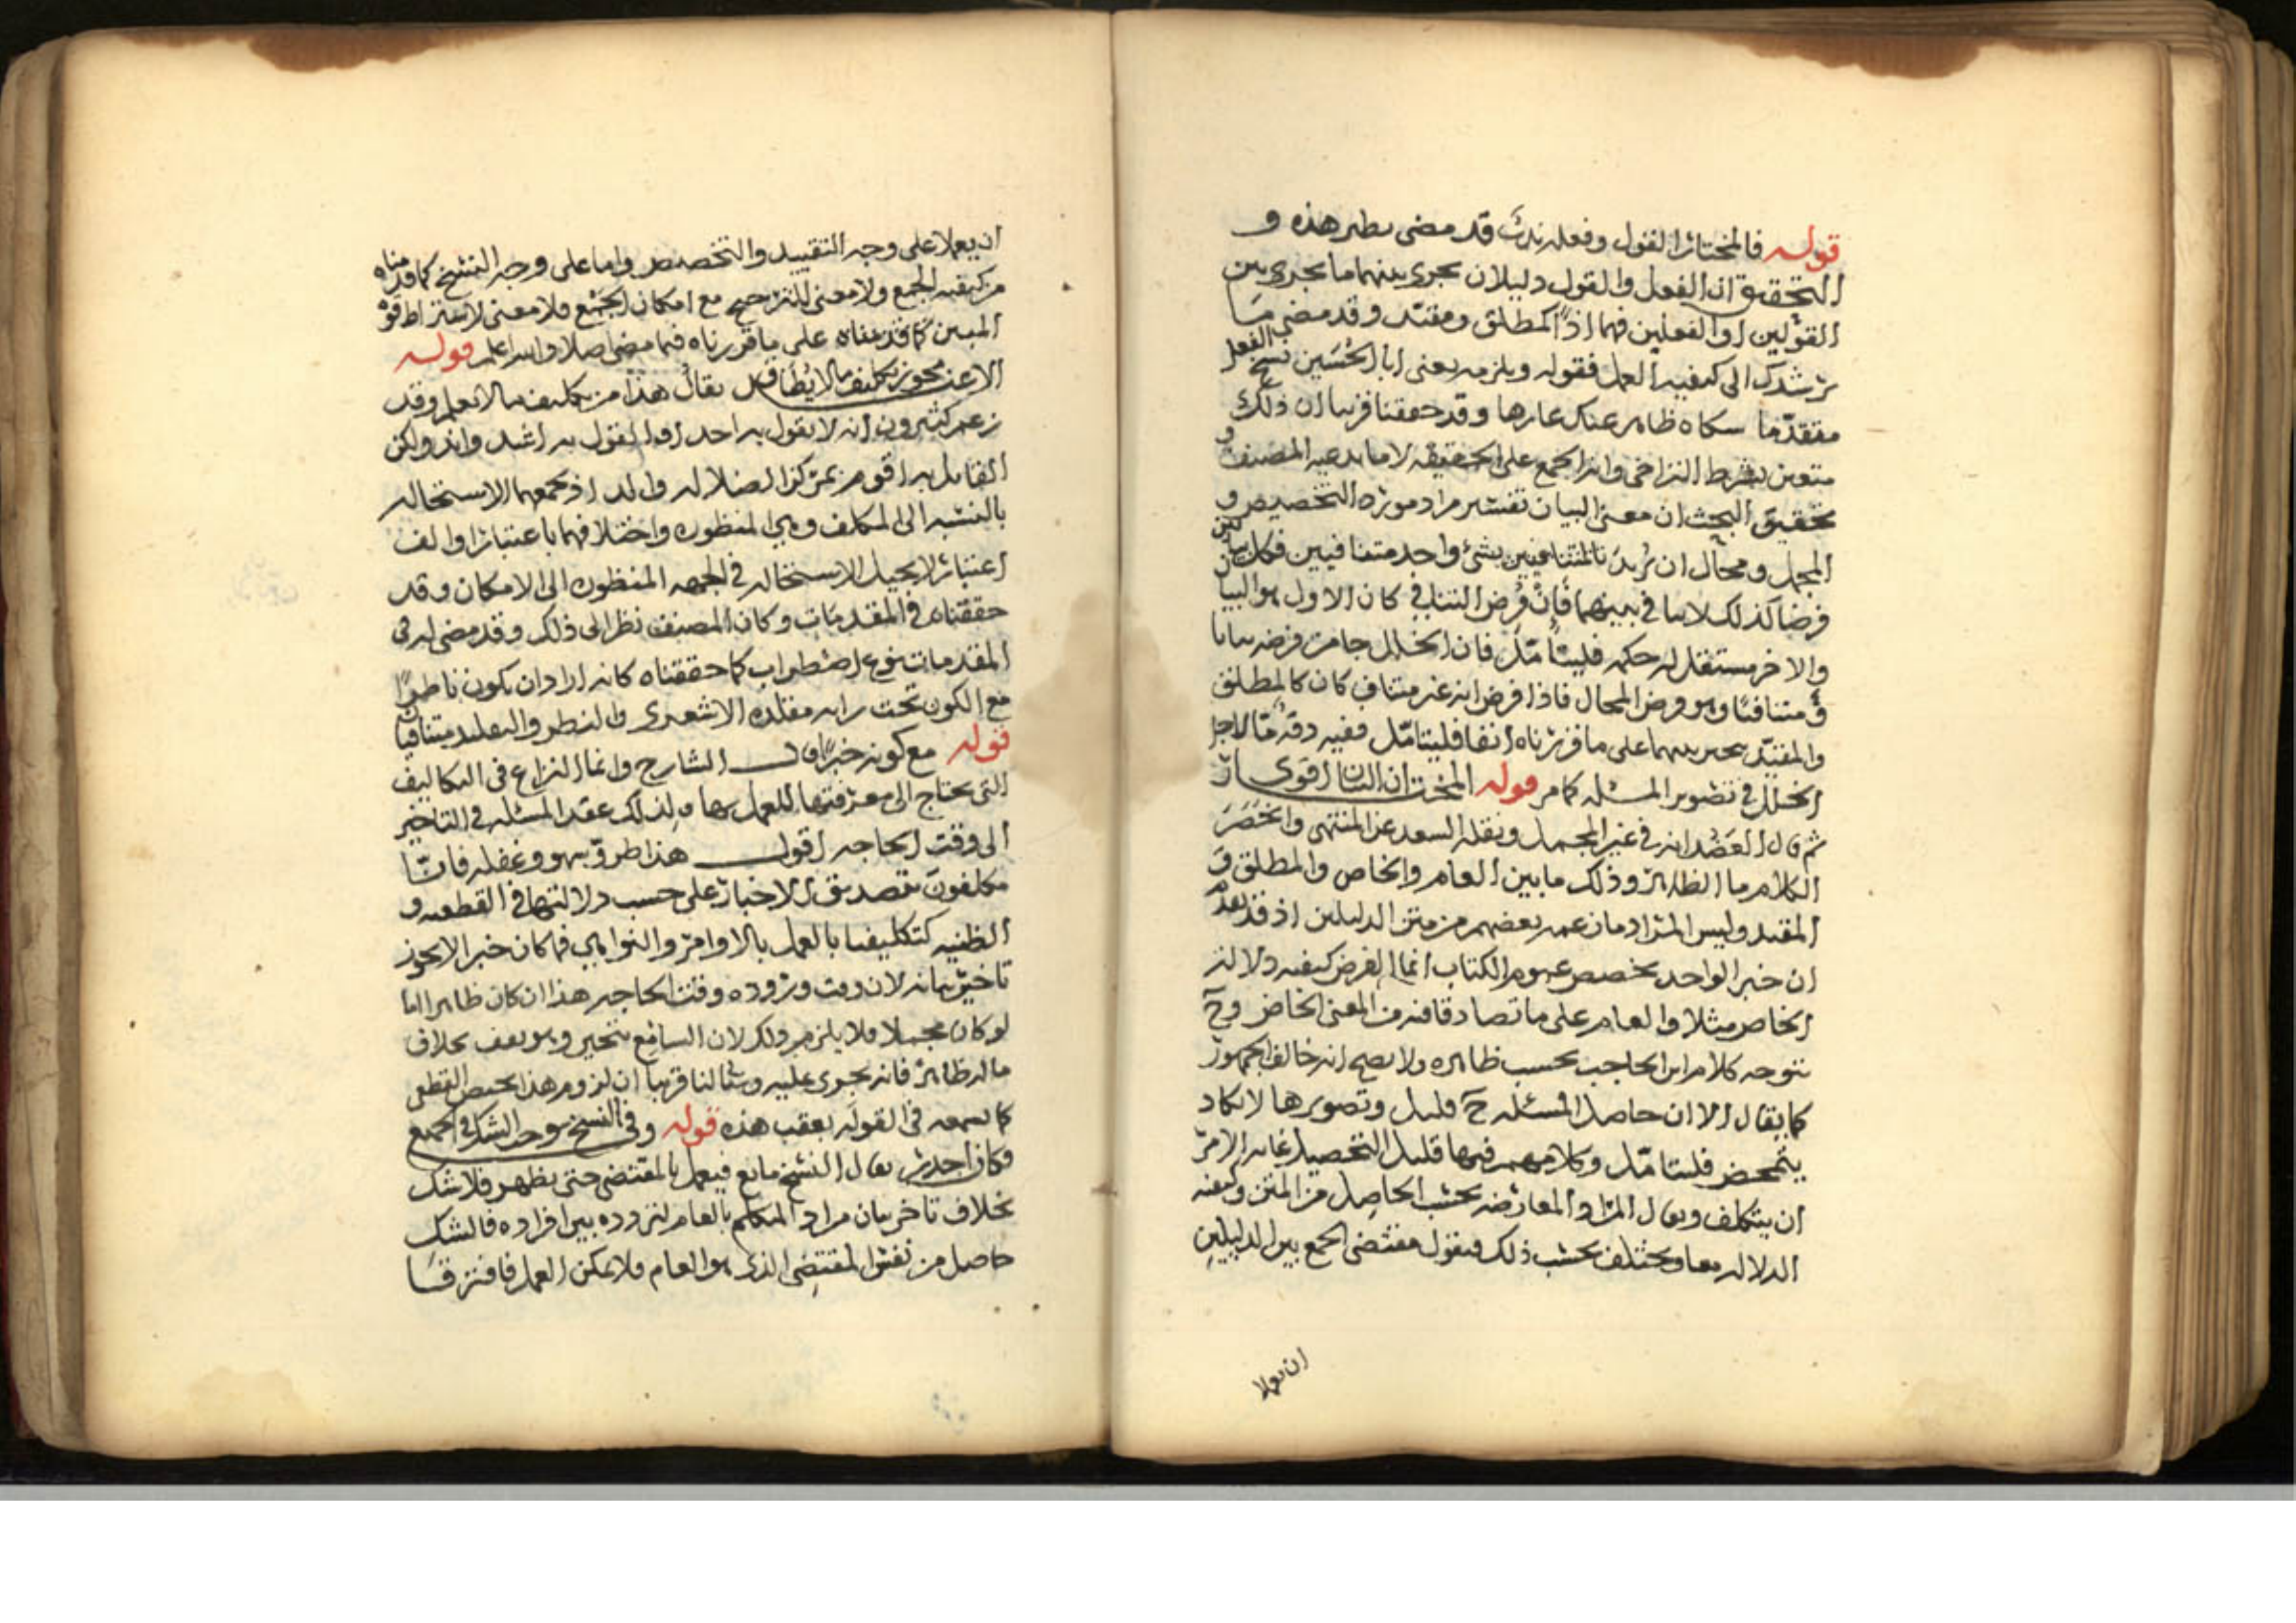 قوله فالمختار القول وفعله ندب قد مضى نظير هذه و
التحقيق ان الفعل والقول دليلان يجرى بينهما ما يجرى بين
القولين او الفعلين فهما اذا كمطلق ومقيد وقد مضى ما
يرشدك الى كيفيه العمل فقوله ويلزمه يعنى ابا الحسين نسخ الفعل
متقدما شكاه ظاهر عنك عارها وقد حققنا قريبا ان ذلك
متعين بشرط التراخى وانه الجمع على الحقيقه لا ما يدعيه المصنف و
تحقيق البحث ان معنى البيان تفسير مراد التخصيص و
المجمل ومحال ان يريد بالمتنافيين بشئ واحد متنافيين فكل
فرضا كذلك لا تنافى بينهما فان فرض التنافى كان الاول هو البيان
والاخر مستقل له حكمه فليتأمل فان الخلل جا من فرضه بيانا
و متنافيا وهو فرض المحال فاذا فرض انه غير متناف كان كالمطلق
والمقيد بينهما على ما قررناه انفا فليتامل ففيه دقه ما لاجل
الخلل فى تصوير المسئله كما مر قوله المختار ان البيان اقوى
ثم قال العضد انه فى غير المجمل ونقله السعد عن المنتهى وانحصر
الكلام ما الظاهر وذلك ما بين العام والخاص والمطلق و
المقيد وليس المراد ما زعمه بعضهم من متن الدليلين اذ قد تقدم
ان خبر الواحد يخصص عموم الكتاب انما الغرض كيفيه دلاله
الخاص مثلا والعام على ما تصادقا فيه من المعنى الخاص وح
يتوجه كلام ابن الحاجب بحسب ظاهره ولا يصح انه خالف الجمهور
كما يقال الا ان حاصل المسئله ح قليل وتصويرها لا يكاد
يتمحض فليتامل وكلامهم فيها قليل التحصيل غايه الامر
ان يتكلف ويقال المراد المعارضه بحسب الحاصل من المتن وكيفيه
الدلاله معا ويختلف بحسب ذلك فيقول مقتضى الجمع بين الدليلين
ان يعملا
ان يعملا على وجه التقييد والتخصيص واما على وجه النسخ كما قدمناه
من كيفيه الجمع ولا معنى للترجيح مع امكان الجمع فلا معنى لاشتراط قوة
المبين كما قدمناه على ما قررناه فيما مضى اصلا والله اعلم قوله
الا عند مجوز تكليف ما لا يطاق قد يقال هذا من تكليف ما لا يعلم وقد
زعم كثيرون انه لا يقول به احد او القول به اشد واند ولكن
القايل به اقوم بمركز الضلاله والد اذ يجمعهما الاستحاله
بالنسبه الى المكلف وهى المنظوره واختلافهما باعتبار او الف
اعتبار لا يحيل الاستحاله فى الجهه المنظوره الى الامكان وقد
حققناه فى المقدمات وكان المصنف نظر الى ذلك وقد مضى له فى
المقدمات نوع اضطراب كما حققناه كانه اراد ان يكون ناظرا
مع الكون تحت رايه مقلده الاشعرى والنظر والتقليد متنافيان
قوله مع كونه خبرا قال الشارح وانما النزاع فى التكاليف
التى يحتاج الى معرفتها للعمل بها ولذلك عقد المسئله فى التاخير
الى وقت الحاجه اقول هذا طرو سهو وغفله فانا
مكلفون بتصديق الاخبار على حسب دلالتها فى القطعيه و
الظنيه كتكليفنا بالعمل بالاوامر والنواهى فما كان خبرا لا يجوز
تاخير بيانه لان وقت وروده وقت الحاجه هذا ان كان ظاهرا اما
لو كان مجملا فلا يلزم ذلك لان السامع يتحير وهو يقف بخلاف
ما له ظاهر فانه يجرى عليه وسياتى لنا قريبا ان لزوم هذا يخص القطعى
كما تسمعه فى القوله بعقب هذه قوله وفى النسخ يوجب الشك فى الجميع
فكان اجدر يقال النسخ مانع فيعمل بالمقتضى حتى يظهر فلا شك
بخلاف تاخر بيان مراد المتكلم بالعام لتردده بين افراده فالشك
حاصل من نفس المقتضى الذى هو العام فلا يمكن العمل فافترقا